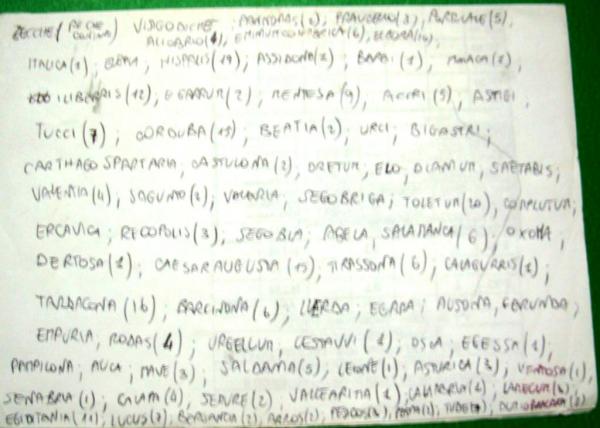 ZECCHE / VISIGOTICHE : BRACARA(3), PORTUCALE(5),
EMINIUM CONIMBRICA(6), ELBORA(10),
ITALICA(1); ELEPLA; HISPALIS(19); ASSIDONA(2); BARBI(1), MALACA(2),
ILIBERRIS(12); EGABRUM(2); MENTESA(9), ACCRI(5), ASTIGI,
TUCCI(7); CORDUBA(15); BEATIA(2); URCI; BIGASTRI;
CARTHAGO SPARTARIA, CASTULONA(2), ORETUM, ELO, DIANIUM, SAETABIS,
VALENTIA(4), SAGUNTO(2), VALERIA, SEGOBRIGA; TOLETUM(20), COMPLUTUM,
ERCAVICA; RECOPOLIS(3), SEGOBIA, ABELA, SALAMANCA(6), OXOMA,
DERTOSA(1); CAESARAUGUSTA(15), TIRASSONA(6), CALAGURRIS(1);
TARRAGONA(16); BARCINONA(6); LLERDA; EGARA; AUSONA, GERUNDA;
EMPURIA, RODAS(4); URGELLUM, CESTAVVI(1); OSCA, EGESSA(1),
PAMPILONA; AUCA; MAVE(3); SALDANIA(5), LEONE(1), ASTURICA(3), VENTOSA(1),
SENABRIA(1); SEAURE(2), CALIABRIA(1), LAMECUM(3),
EGIDITANIA(11); LUCUS(7); BERGANCIA(2), ARROS(2), TUDE